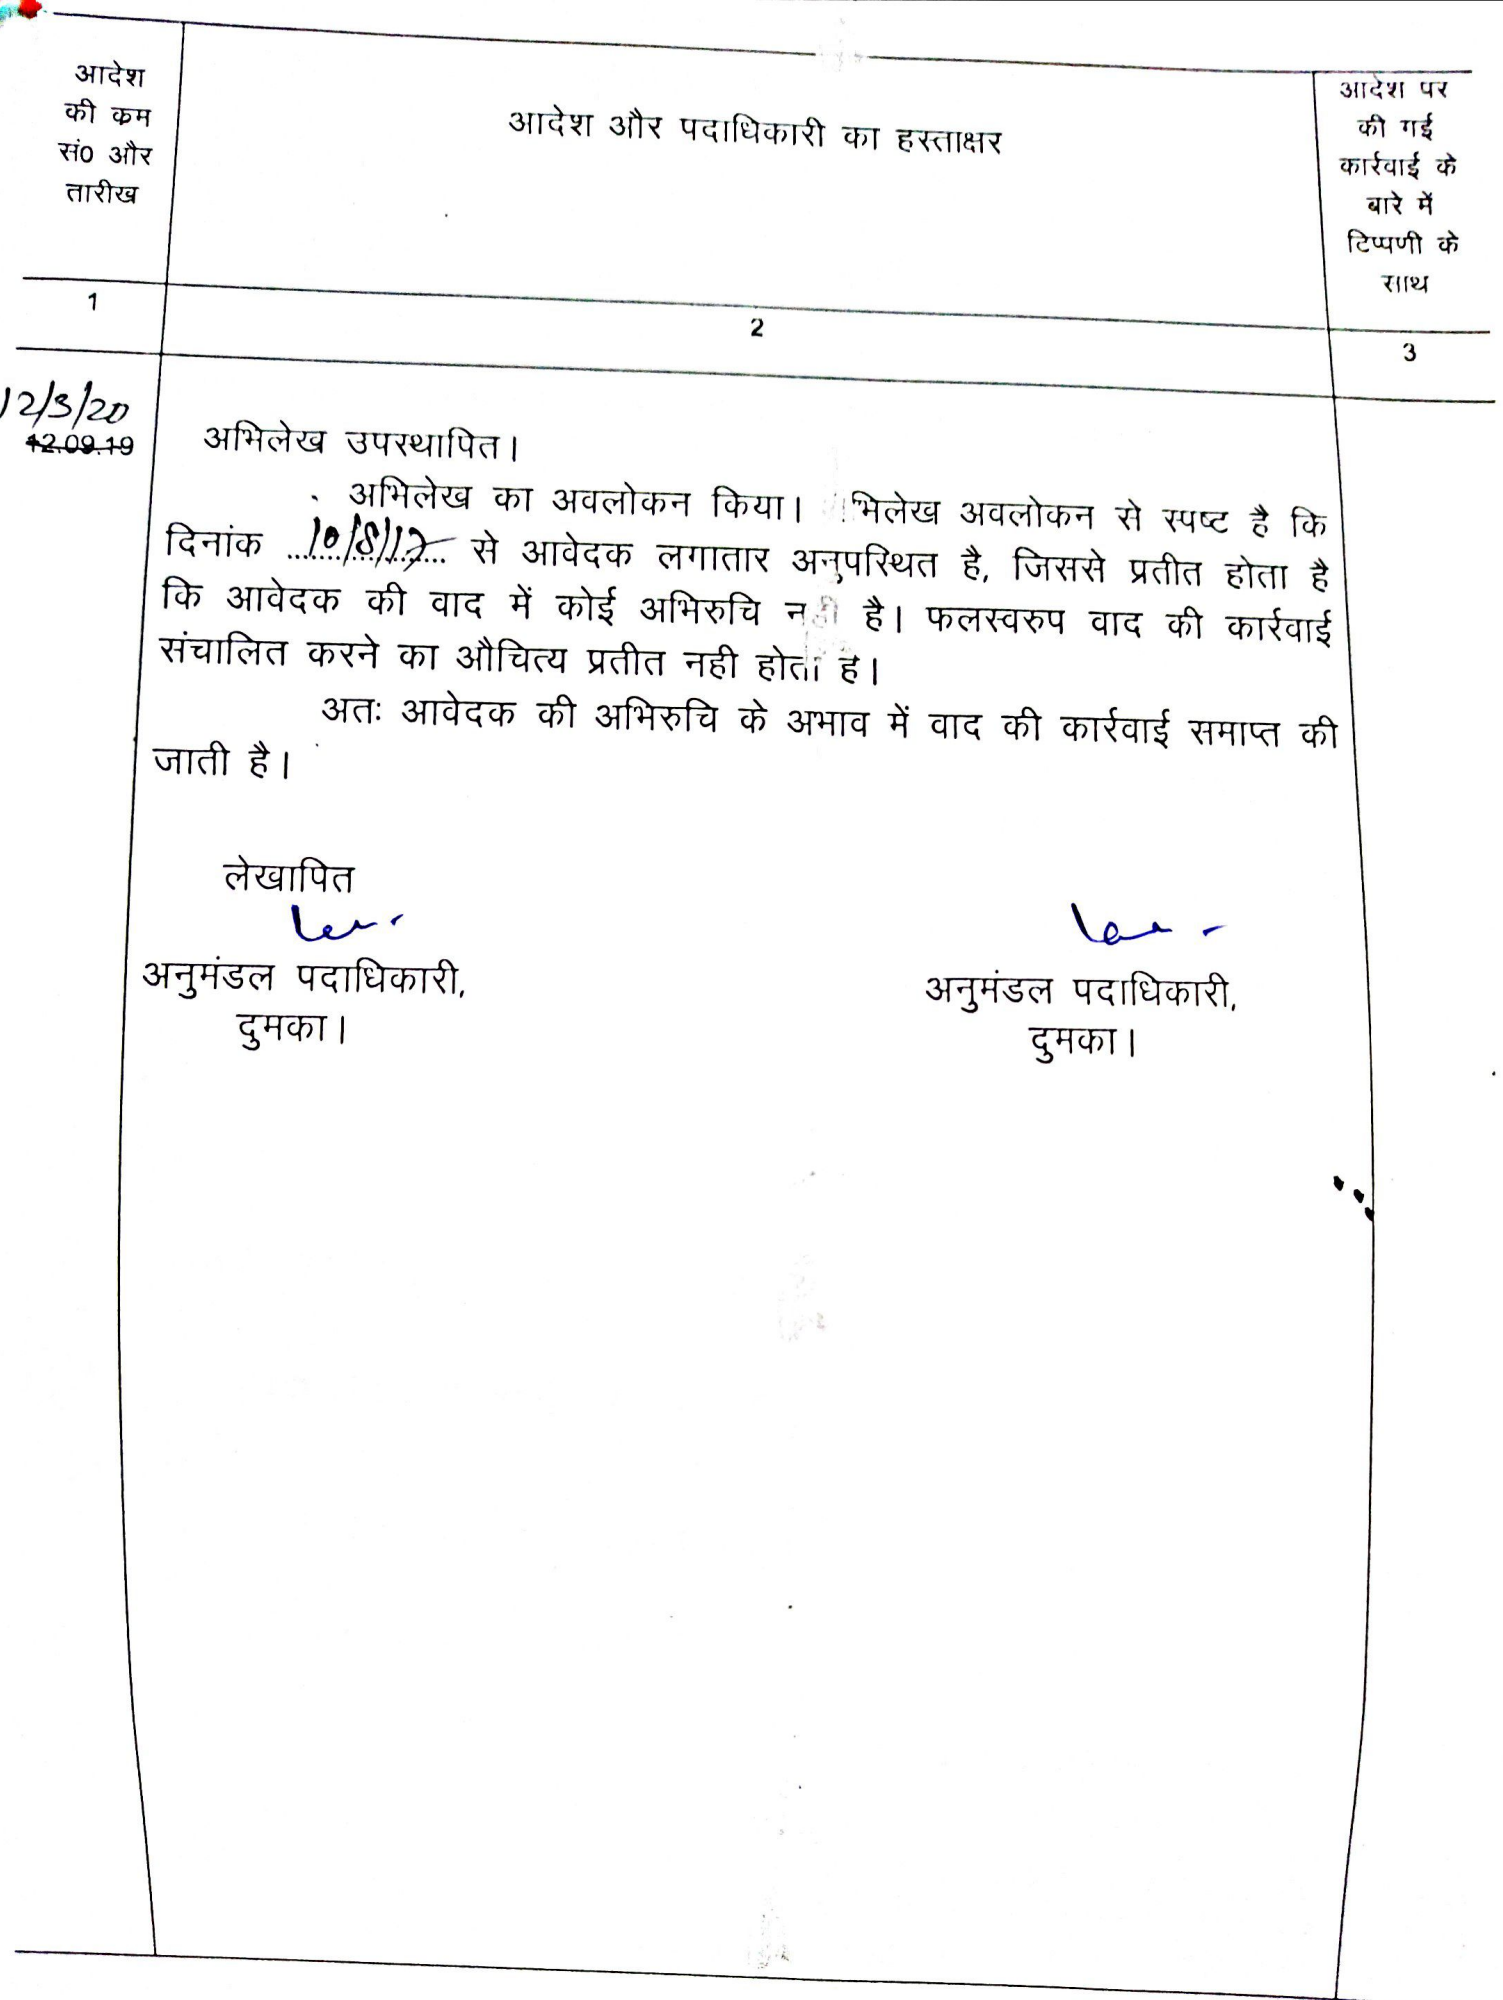 आदेश
की कम
सं0 और
तारीख
आदेश और पदाधिकारी का हस्ताक्षर
आदेश पर
की गई
कार्रवाई के
बारे में
टिप्पणी के
साथ
1
2
3
12/3/20
12.09.19
अभिलेख उपस्थापित।
अभिलेख का अवलोकन किया। भिलेख अवलोकन से स्पष्ट है कि
दिनांक ....10/8/17.... से आवेदक लगातार अनुपस्थित है, जिससे प्रतीत होता है
कि आवेदक की वाद में कोई अभिरुचि नही है। फलस्वरुप वाद की कार्रवाई
संचालित करने का औचित्य प्रतीत नही होता है।
अतः आवेदक की अभिरुचि के अभाव में वाद की कार्रवाई समाप्त की
जाती है।
लेखापित
अनुमंडल पदाधिकारी,
दुमका।
अनुमंडल पदाधिकारी,
दुमका।